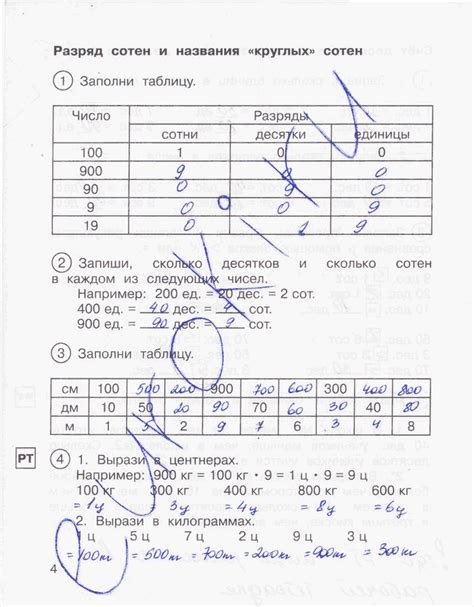 Разряд сотен и названия «круглых» сотен
1 Заполни таблицу.
Число Разряды
сотни десятки единицы
100 1 0 0
900 9 0 0
90 0 9 0
9 0 0 9
19 0 1 9
2 Запиши, сколько десятков и сколько сотен
в каждом из следующих чисел.
Например: 200 ед. = 20 дес. = 2 сот.
400 ед. = 40 дес. = 4 сот.
900 ед. = 90 дес. = 9 сот.
3 Заполни таблицу.
см 100 500 200 900 700 600 300 400 800
дм 10 50 20 90 70 60 30 40 80
м 1 5 2 9 7 6 3 4 8
РТ 4 1. Вырази в центнерах.
Например: 900 кг = 100 кг · 9 = 1 ц · 9 = 9 ц
100 кг 300 кг 400 кг 800 кг 600 кг
=1ц =3ц =4ц =8ц =6ц
2. Вырази в килограммах.
1 ц 5 ц 7 ц 2 ц 9 ц 3 ц
=100кг =500кг =700кг =200кг =900кг =300кг
4